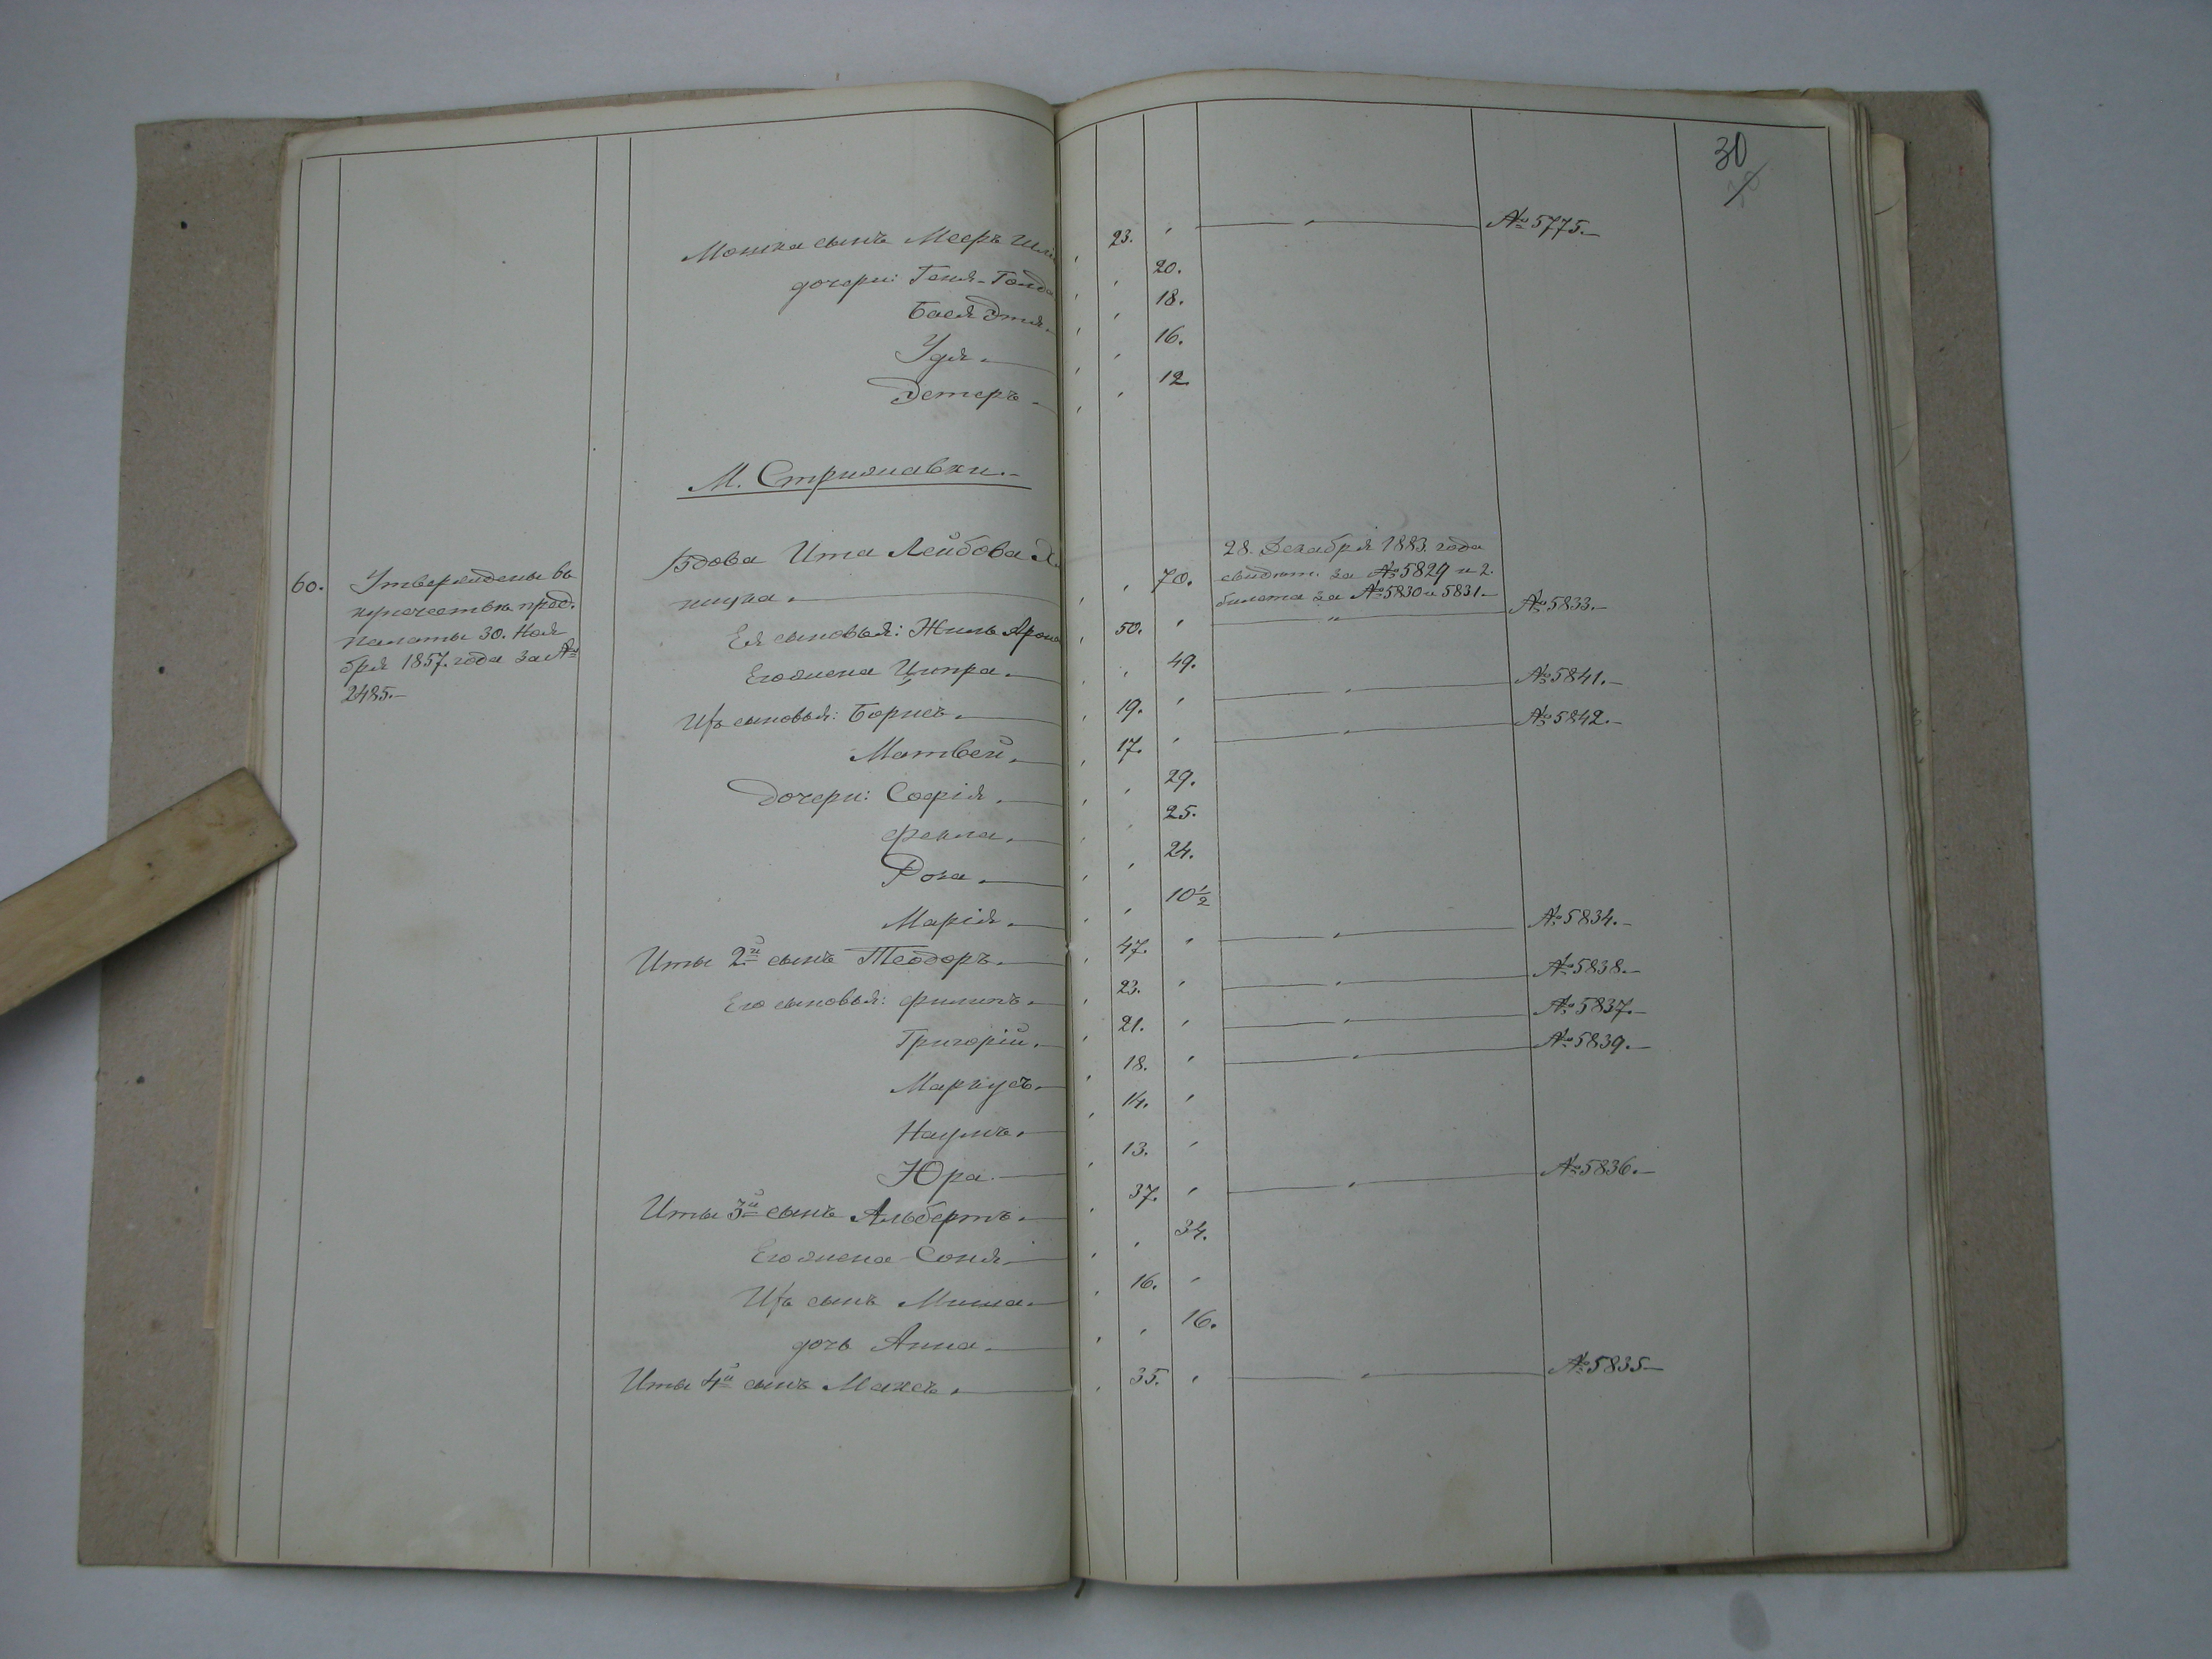 30
Мошка сынъ Мееръ 23. " — " — № 5775.—
дочери: Геня-Голда " " 20.
Бася Этя. " " 18.
Удя. " " 16.
Этеръ " " 12.
М. Стрижавки.—
60. Утверждены въ
купечествѣ пред.
палаты 30. Ноя
бря 1857. года за №
2485.—
Вдова Ита Лейбова
28. Декабря 1883. года
" " 70. свидѣт. за № 5829 и 2.
билета за № 5830 и 5831.—
Ея сыновья: Жиль Арон 50. " — " — № 5833.—
Его жена Ципра. " " 49.
Ихъ сыновья: Борисъ. " 19. " — " — № 5841.—
Матвей. " 17. " — " — № 5842.—
Дочери: Софія. " " 29.
Фекла. " " 25.
Роза. " " 24.
Марія. " " 10½
Иты 2й сынъ Теодоръ. " 47. " — " — № 5834.—
Его сыновья: Филипъ. " 23. " — " — № 5838.—
Григорій. " 21. " — " — № 5837.—
Маркусъ. " 18. " — " — № 5839.—
Наумъ. " 14. "
Юра. " 13. "
Иты 3й сынъ Альбертъ. " 37. " — " — № 5836.—
Его жена Соня. " " 34.
Ихъ сынъ Миша. " 16. "
дочь Анна. " " 16.
Иты 4й сынъ Максъ. " 35. " — " — № 5835—